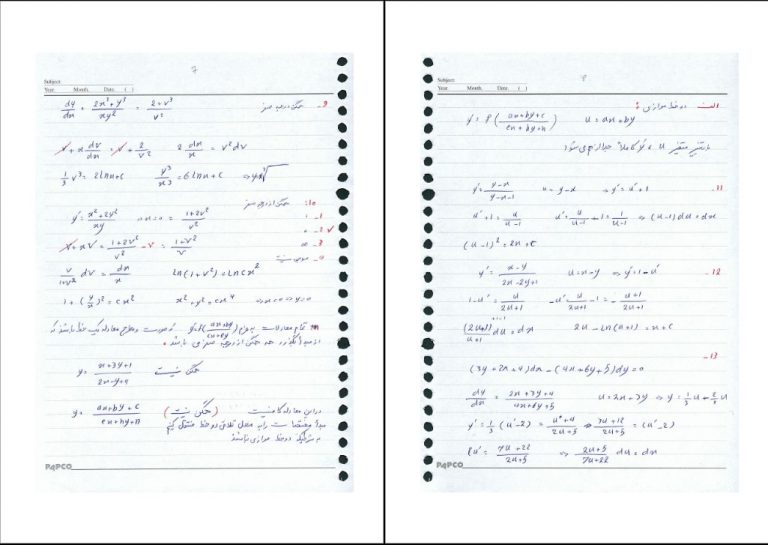 7
Subject:
Year. Month. Date. ( )
9- همگن درجه صفر dy/dx = (2x³+y³)/(xy²) = (2+v³)/v²
v + x dv/dx = v + 2/v² 2 dx/x = v² dv
1/3 v³ = 2lnx+c y³/x³ = 6lnx+c ⇒ y=x∛
10- همگن از درجه صفر
y' = (x²+2y²)/(xy) = (1+2v²)/v²
1 -1
2 ✓
v + xv = (1+2v²)/v² - v = (1-v²)/v
v/(1+v²) dv = dx/x ln(1+v²) = ln cx²
1+(y/x)² = cx² x²+y² = cx⁴ ⇒ x=0 ⇒ y=0
تمام معادلات به فرم y'=f((ax+by)/(cx+ey)) که صورت و مخرج معادله یک خط باشند که
از مبدا بگذرد همگن از درجه صفر می باشد.
همگن نیست y = (x+3y+1)/(2x-y+4)
y = (ax+by+c)/(ex+hy+n) (همگن نیست) در این معادله کافیست
مبدأ مختصات را به محل تلاقی دو خط منتقل کنیم
به شرطیکه دو خط موازی نباشند
PAPCO
8
Subject:
Year. Month. Date. ( )
الف دو خط موازی:
y' = f((ax+by+c)/(en+by+n)) u = ax+by
با تغییر متغیر u معادله کاملاً جدا پذیر می شود
11- y' = (y-x)/(y-x-1) u = y-x ⇒ y' = u'+1
u'+1 = u/(u-1) u' = u/(u-1) - 1 = 1/(u-1) ⇒ (u-1)du = dx
(u-1)² = 2x+c
12- y' = (x-y)/(2x-2y+1) u = x-y y' = 1-u'
1-u' = u/(2u+1) -u' = u/(2u+1) - 1 = -(u+1)/(2u+1)
+1-1
(2u+1)/(u+1) du = dx 2u-ln(u+1) = x+c
13-
(3y+2x+4)dx-(4x+6y+5)dy=0
dy/dx = (2x+3y+4)/(4x+6y+5) u = 2x+3y ⇒ y = 1/3 u + 2/3 x
y' = 1/3 (u'-2) = (u+4)/(2u+5) ⇒ (3u+12)/(2u+5) = (u'-2)
u' = (7u+22)/(2u+5) ⇒ (2u+5)/(7u+22) du = dx
PAPCO